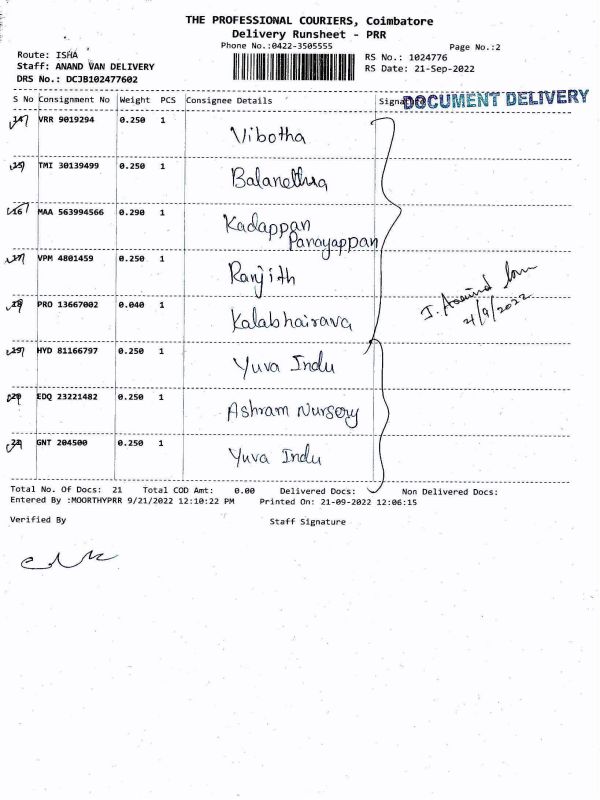 THE PROFESSIONAL COURIERS, Coimbatore
Delivery Runsheet - PRR
Phone No.:0422-3505555
Page No.:2
Route: ISHA
RS No.: 1024776
Staff: ANAND VAN DELIVERY
RS Date: 21-Sep-2022
DRS No.: DCJB102477602
DOCUMENT DELIVERY
S No Consignment No Weight PCS Consignee Details
14 VRR 9019294 0.250 1 Vibotha
15 TMI 30139499 0.250 1
16 MAA 563994566 0.290 1 Kadappan
Panayappan
17 VPM 4801459 0.250 1 Ranjith
18 PRO 13667002 0.040 1 Kalabhairava
21/9/2022
19 HYD 81166797 0.250 1 Yuva Indu
20 EDQ 23221482 0.250 1 Ashram Nursery
21 GNT 204500 0.250 1 Yuva Indu
Total No. Of Docs: 21 Total COD Amt: 0.00 Delivered Docs: Non Delivered Docs:
Entered By :MOORTHYPRR 9/21/2022 12:10:22 PM Printed On: 21-09-2022 12:06:15
Verified By Staff Signature